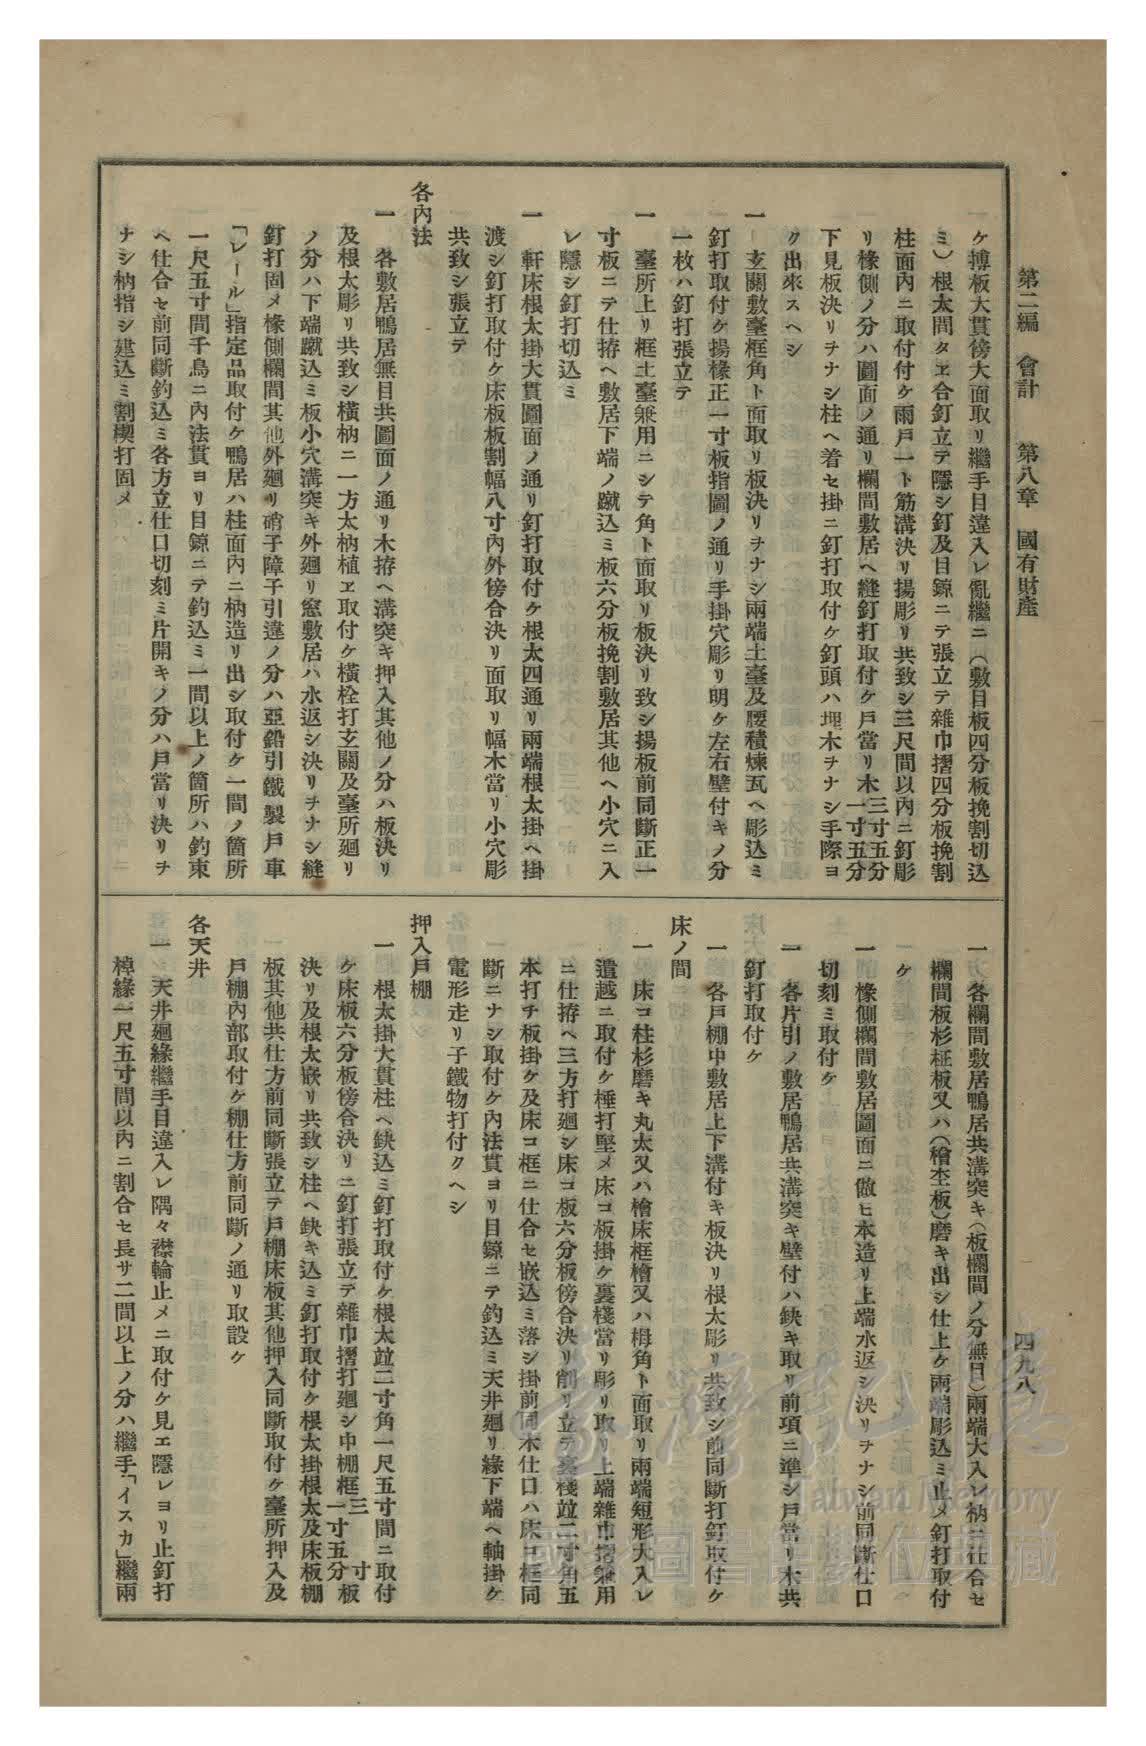 第二編　會計　第八章　國有財產
四九八
ケ搏板大貫傍大面取リ繼手目違入レ亂繼ニ（敷目板四分板挽割切込
ミ）根太間タヱ合釘立テ隱シ釘及目鎹ニテ張立テ雜巾摺四分板挽割
柱面內ニ取付付ケ雨戶一ト筋溝決リ揚彫リ共致シ三尺間以內ニ釘彫
リ椽側ノ分ハ圖面ノ通リ欄間敷居ヘ縫釘打取付ケ戶當リ木三寸五分一寸五分
下見板決リヲナシ柱ヘ着セ掛ニ釘打取付ケ釘頭ハ埋木ヲナシ手際ヨ
ク出來スヘシ
一　玄關敷臺框角ト面取リ板決リヲナシ兩端土臺及腰積煉瓦ヘ彫込ミ
釘打取付ケ揚椽正一寸板指圖ノ通リ手掛穴彫リ明ケ左右壁付キノ分
一枚ハ釘打張立テ
一　臺所上リ框土臺兼用ニシテ角ト面取リ板決リ致シ揚板前同斷正一
寸板ニテ仕拵ヘ敷居下端ノ蹴込ミ板六分板挽割敷居其他ヘ小穴ニ入
レ隱シ釘打切込ミ
一　軒床根太掛大貫圖面ノ通リ釘打取付ケ根太四通リ兩端根太掛ヘ掛
渡シ釘打取付ケ床板板割幅八寸內外傍合決リ面取リ幅木當リ小穴彫
共致シ張立テ
各內法
一　各敷居鴨居無目共圖面ノ通リ木拵ヘ溝突キ押入其他ノ分ハ板決リ
及根太彫リ共致シ橫枘ニ一方太枘植ヱ取付ケ橫栓打玄關及臺所廻リ
ノ分ハ下端蹴込ミ板小穴溝突キ外廻リ窓敷居ハ水返シ決リヲナシ縫
釘打固メ椽側欄間其他外廻リ硝子障子引違ノ分ハ亞鉛引鐵製戶車
「レール」指定品取付ケ鴨居ハ柱面內ニ枘造リ出シ取付ケ一間ノ箇所
一尺五寸間千鳥ニ內法貫ヨリ目鎹ニテ釣込ミ一間以上ノ箇所ハ釣束
ヘ仕合セ前同斷釣込ミ各方立仕口切刻ミ片開キノ分ハ戶當リ決リヲ
ナシ枘指シ建込ミ割楔打固メ
一　各欄間敷居鴨居共溝突キ（板欄間ノ分無目）兩端大入レ枘ニ仕合セ
欄間板杉柾板又ハ（檜杢板）磨キ出シ仕上ケ兩端彫込ミ止メ釘打取付
ケ
一　椽側欄間敷居圖面ニ倣ヒ本造リ上端水返シ決リヲナシ前同斷仕口
切刻ミ取付ケ
一　各片引ノ敷居鴨居共溝突キ壁付ハ鋏キ取リ前項ニ準シ戶當リ木共
釘打取付ケ
一　各戶棚中敷居上下溝付キ板決リ根太彫リ共致シ前同斷打釘取付ケ
床ノ間
一　床コ柱杉磨キ丸太又ハ檜床框檜又ハ栂角ト面取リ兩端短形大入レ
遣越ニ取付ケ棰打堅メ床コ板掛ケ裏棧當リ彫リ取リ上端雜巾摺兼用
ニ仕拵ヘ三方打廻シ床コ板六分板傍合決リ削リ立テ裏棧竝二寸角五
本打チ板掛ケ及床コ框ニ仕合セ嵌込ミ落シ掛前同木仕口ハ床コ框同
斷ニナシ取付ケ內法貫ヨリ目鎹ニテ釣込ミ天井廻リ緣下端ヘ軸掛ケ
電形走リ子鐵物打付クヘシ
押入戶棚
一　根太掛大貫柱ヘ鋏込ミ釘打取付ケ根太竝二寸角一尺五寸間ニ取付
ケ床板六分板傍合決リニ釘打張立テ雜巾摺打廻シ中棚框三寸一寸五分板
決リ及根太嵌リ共致シ柱ヘ鋏キ込ミ釘打取付ケ根太掛根太及床板棚
板其他共仕方前同斷張立テ戶棚床板其他押入同斷取付ケ臺所押入及
戶棚內部取付ケ棚仕方前同斷ノ通リ取設ケ
各天井
一　天井廻緣繼手目違入レ隅々襟輪止メニ取付ケ見エ隱レヨリ止釘打
棹緣一尺五寸間以內ニ割合セ長サ二間以上ノ分ハ繼手「イスカ」繼兩
臺灣記憶
Taiwan Memory
國家圖書館數位典藏